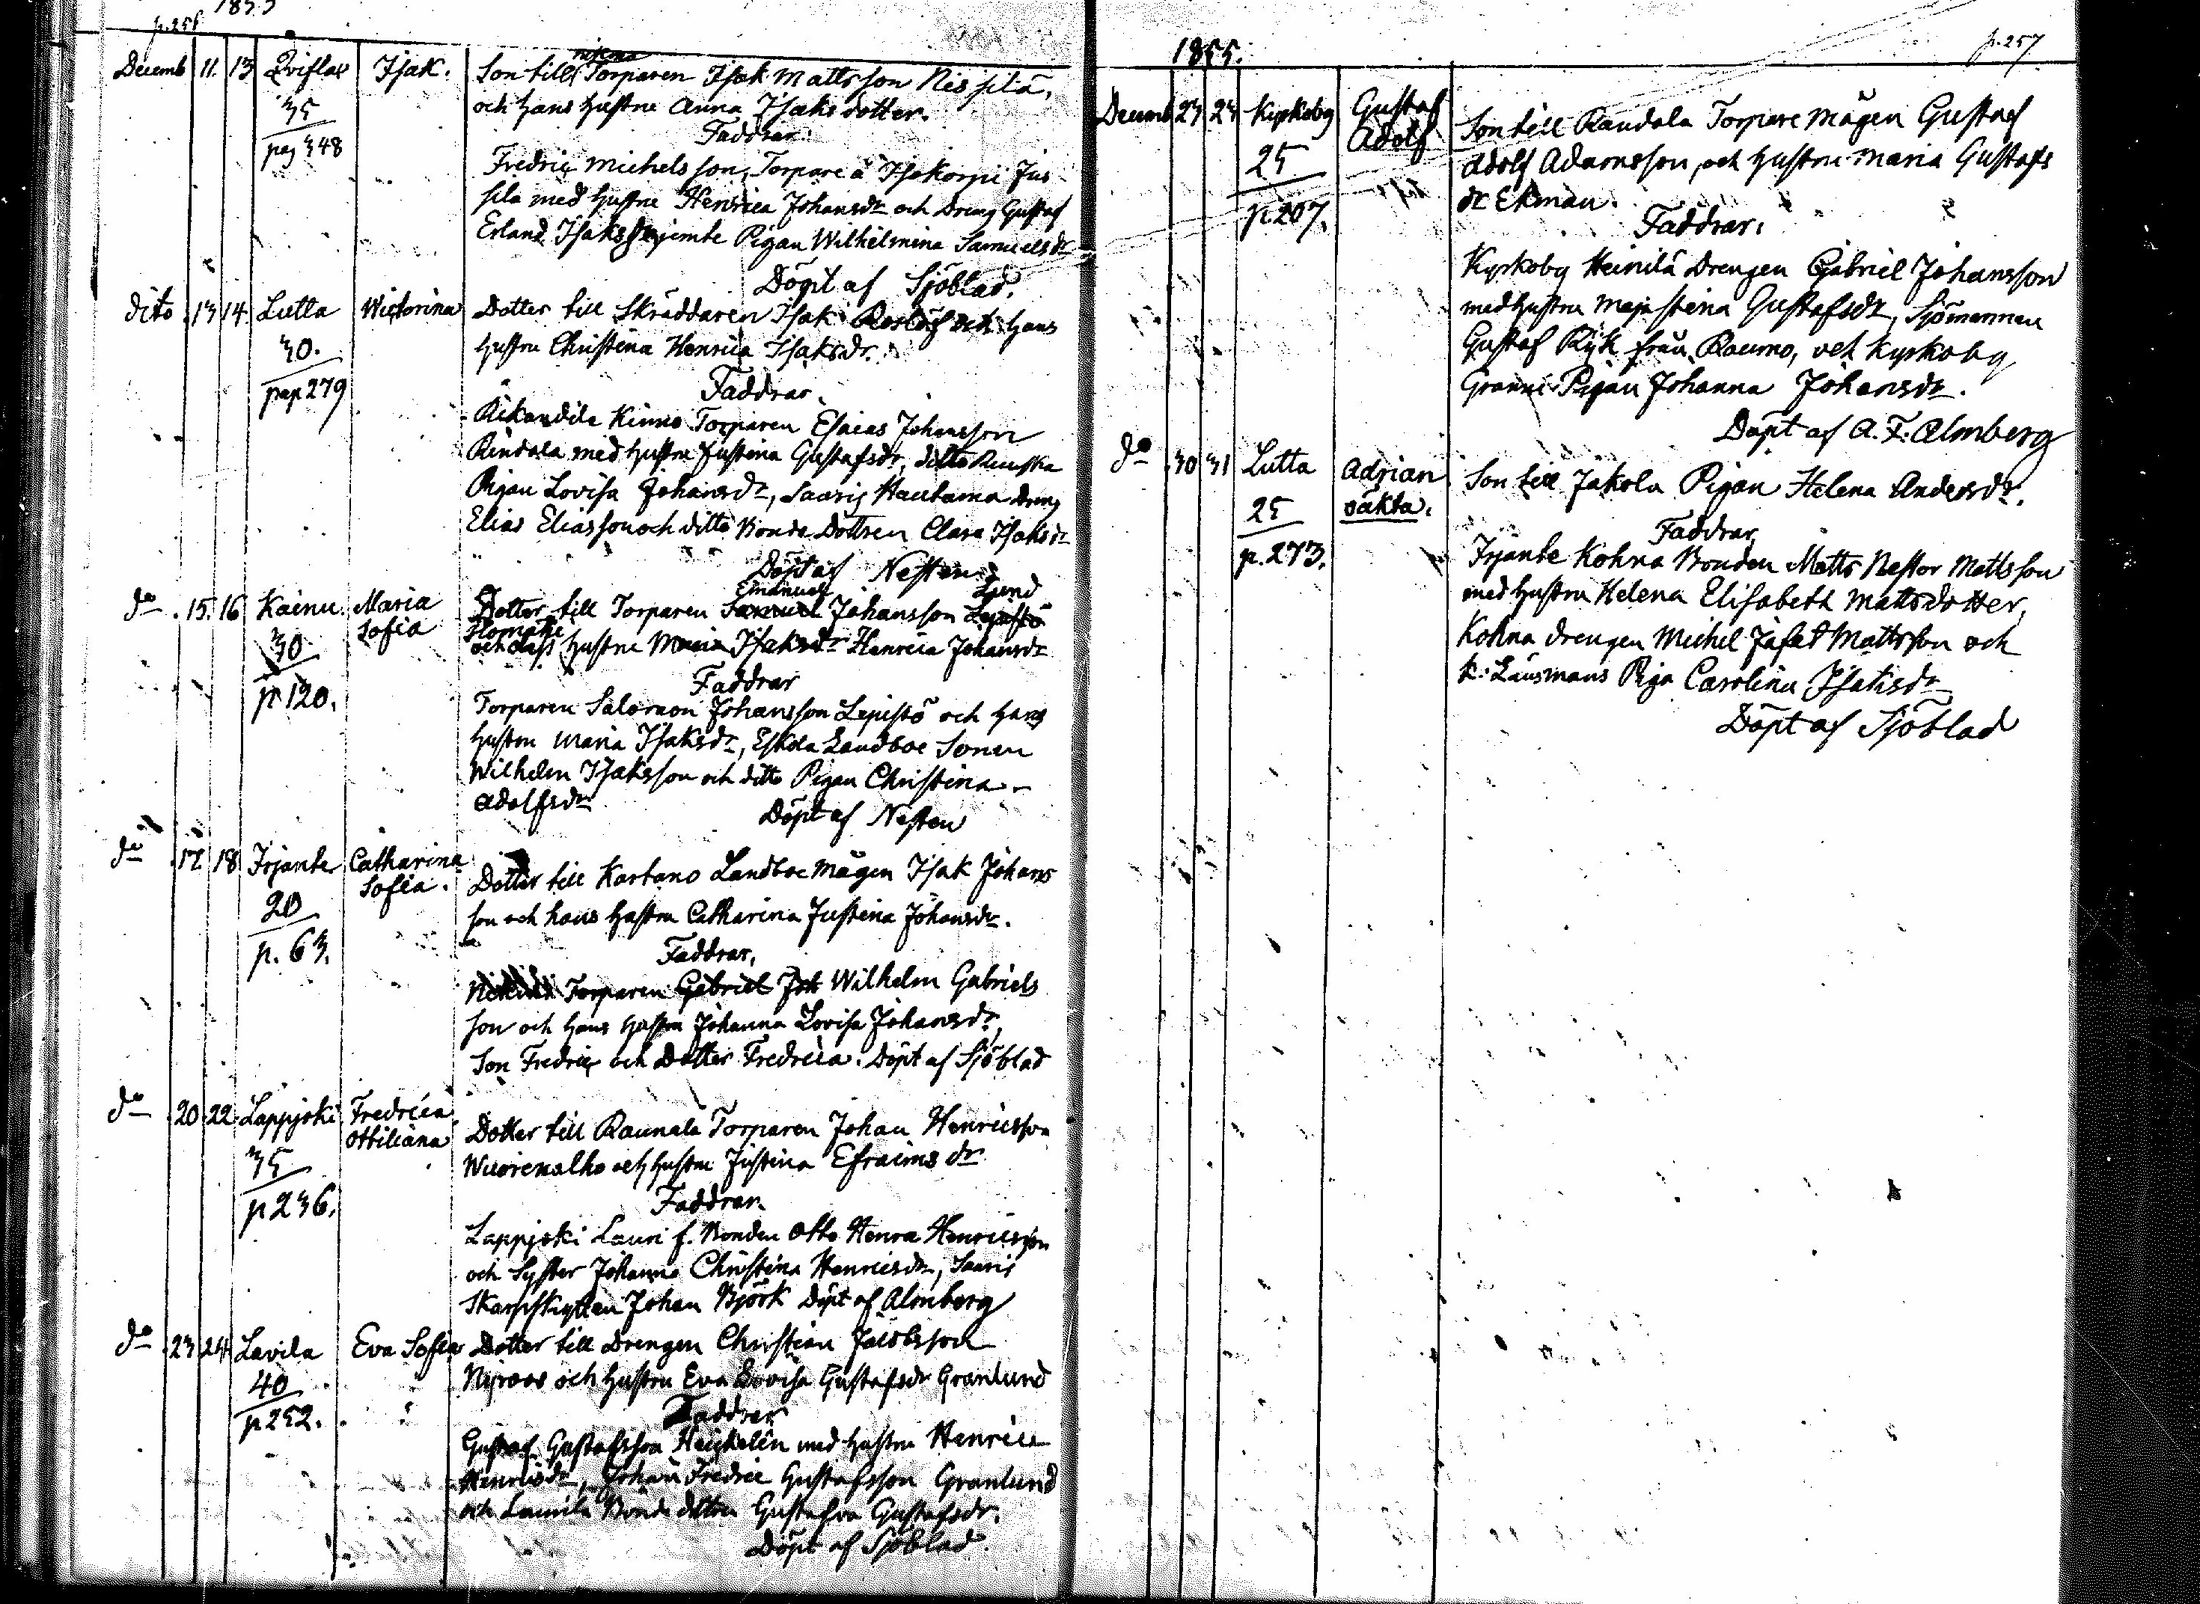 1855
p. 256
Decemb 11. 13 Isak. Son till Torparen Isak Mattsson
35 och hans hustru Anna Isaksdotter.
pag 348 Faddrar:
Fredric Michelsson, Torpare å Isokorpi Jus
sila med hustru Henrica Johansdr och Dreng Gustaf
Erland Isakss jemte Pigan Wilhelmina Samuelsdr
Döpt af Sjöblad.
dito 13 14. Lutta Victorina Dotter till Skräddaren Isak och hans
30. hustru Christina Henrica Isaksdr.
pag 279 Faddrar.
Kinno Torparen Esaias Johansson
Rindala med hustru Justina Gustafsdr, ditto
Pigan Lovisa Johansdr, Saaris Hautama Dreng
Elias Eliasson och ditto Bonde Dottren Clara Isaksdr
Döpt af Nesten
Emanuel Lund
do 15. 16 Kainu Maria Dotter till Torparen Samuel Johansson Lepistö
Sofia och dess hustru Maria Isaksdr Henrica Johansdr
30. Faddrar
p 120. Torparen Salomon Johansson Lepistö och hans
hustru Maria Isaksdr, Eskola Landboe Sonen
Wilhelm Isaksson och ditto Pigan Christina
Adolfsdr Döpt af Nesten
do 17 18 Irjante Catharina
Sofia. Dotter till Kartano Landboe Mågen Isak Johans
20 son och hans hustru Catharina Justina Johansdr.
p. 63. Faddrar,
Torparen Gabriel Joh Wilhelm Gabriels
son och hans hustru Johanna Lovisa Johansdr,
Son Fredric och Dotter Fredrica. Döpt af Sjöblad
do 20 22 Lappjoki Fredrica
Ottiliana Dotter till Raunala Torparen Johan Henricsson
35 och hustru Justina Efraimsdr
p 236. Faddrar.
Lappjoki Lauri f. Bonden Otto Henric Henricsson
och Syster Johanna Christina Henricsdr, Saaris
Skarpskytten Johan Björk Döpt af Almberg
do 23 24 Lavila Eva Sofia Dotter till Drengen Christian Jacobsson
40 Nyroos och hustru Eva Lovisa Gustafsdr Granlund
p 252. Faddrar
Gustaf Gustafsson med hustru Henrica
Henricsdr, Johan Fredric Gustafsson Granlund
och Bonde dottren Gustafva Gustafsdr.
Döpt af Sjöblad.
1855. p. 257
Decemb 23 24 Kyrkoby Gustaf
Adolf Son till Raudala Torpare Mågen Gustaf
25 Adolf Adamsson, och hustru Maria Gustafs
p 207. dr Ekman.
Faddrar.
Kyrkoby Heinilä Drengen Gabriel Johansson
med hustru Maja Stina Gustafsdr, Sjömannen
Gustaf Ryk från Raumo, och Kyrkoby
Pigan Johanna Johansdr.
Döpt af A. F. Almberg
do 30 31 Lutta Adrian Son till Jakola Pigan Helena Andersdr.
25 oäkta. Faddrar
p. 273. Irjante Kohna Bonden Matts Nestor Mattsson
med hustru Helena Elisabeth Mattsdotter,
Kohna Drengen Michel Jafet Mattsson och
K. Länsmans Piga Carolina Isaksdr
Döpt af Sjöblad